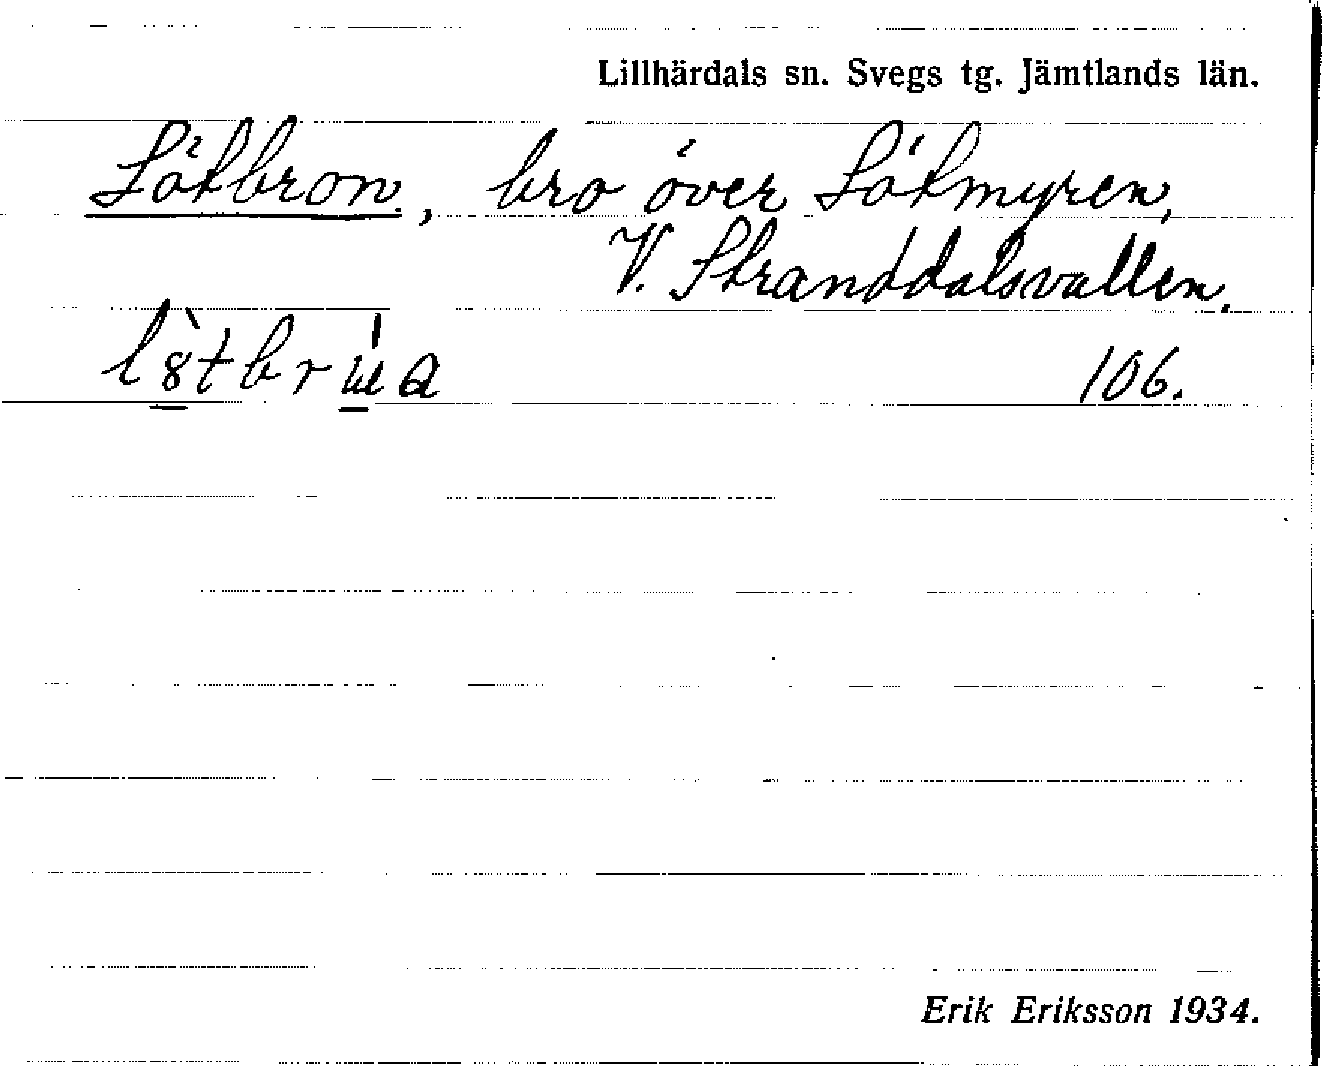 Lillhärdals sn. Svegs tg. Jämtlands län.
Lötbron., bro över Lötmyren,
V. Stranddalsvallen.
106.
Erik Eriksson 1934.